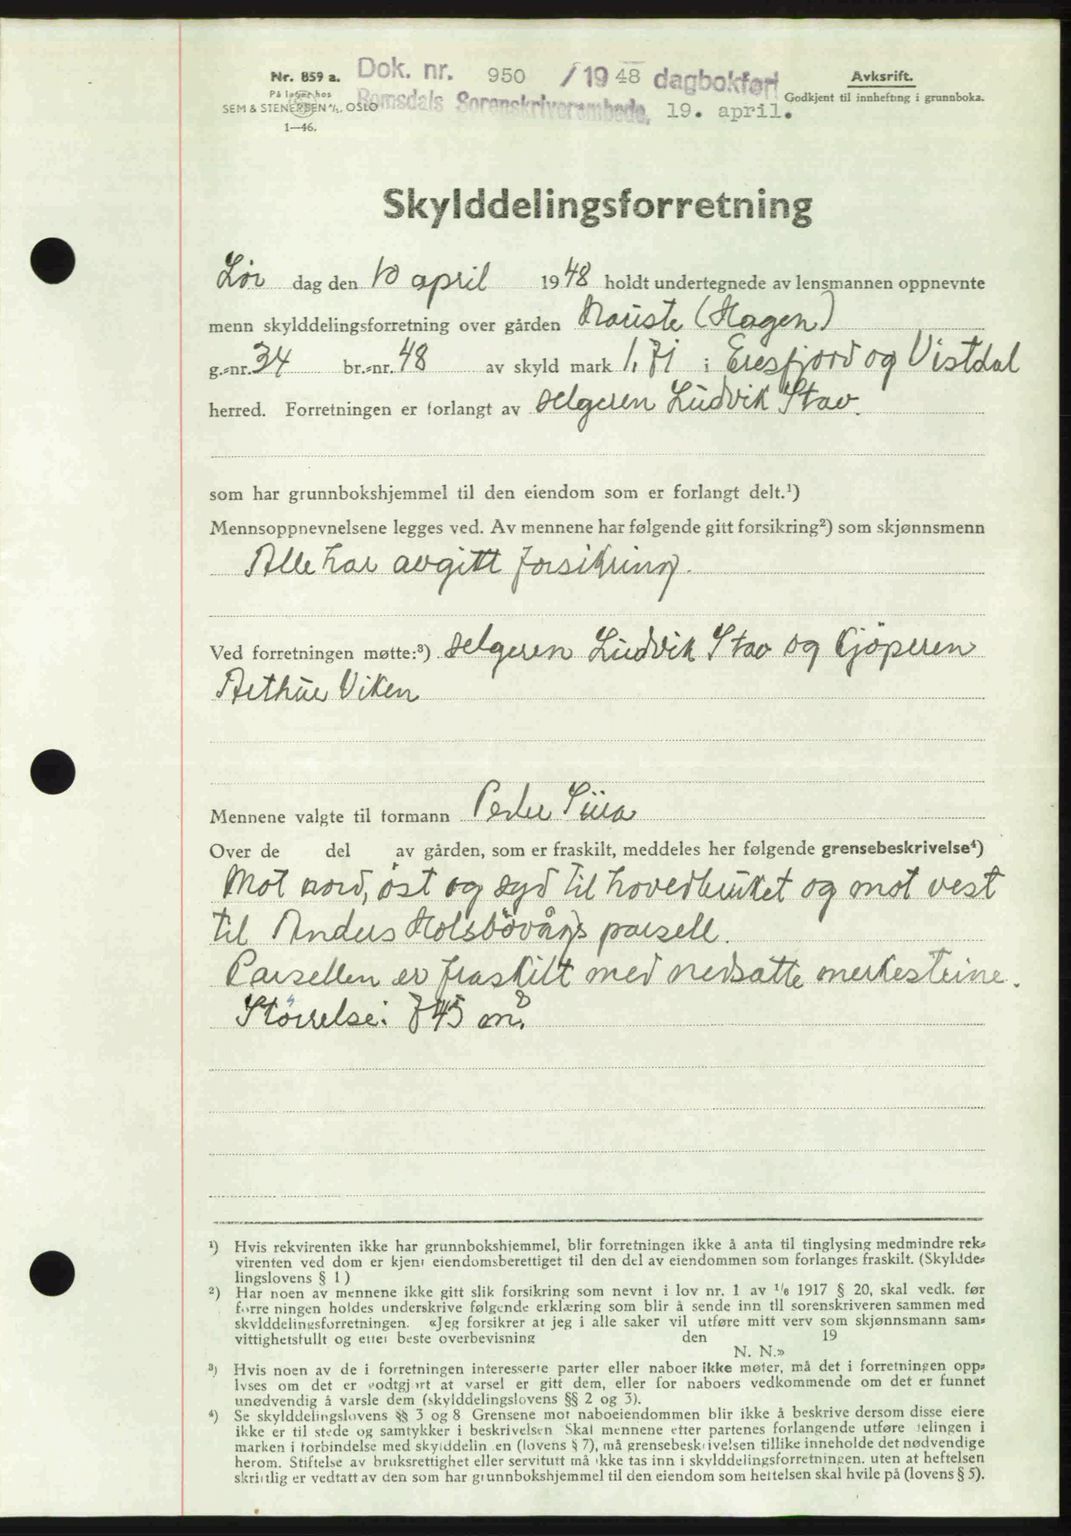 Nr. 859 a.
På lager hos
SEM & STENERSEN A/S. OSLO
1—46.
Dok. nr. 950 /1948 dagbokført
Romsdals Sorenskriverembede, 19. april.
Avskrift.
Godkjent til innhefting i grunnboka.
Skylddelingsforretning
Lør dag den 10 april 1948 holdt undertegnede av lensmannen oppnevnte
menn skylddelingsforretning over gården Nauste (Hagen)
g.-nr. 34 br.-nr. 48 av skyld mark 1,71 i Eresfjord og Vistdal
herred. Forretningen er forlangt av selgeren Ludvik Stav.
som har grunnbokshjemmel til den eiendom som er forlangt delt.¹)
Mennsoppnevnelsene legges ved. Av mennene har følgende gitt forsikring²) som skjønnsmenn
Alle har avgitt forsikring.
Ved forretningen møtte:³) selgeren Ludvik Stav og kjöperen
Arthur Viken
Mennene valgte til formann Peder Sira
Over de del av gården, som er fraskilt, meddeles her følgende grensebeskrivelse⁴)
Mot nord, öst og syd til hovedbruket og mot vest
til Anders Holsbövågs parsell.
Parsellen er fraskilt med nedsatte merkesteine.
Störrelse: 745 m²
¹) Hvis rekvirenten ikke har grunnbokshjemmel, blir forretningen ikke å anta til tinglysing medmindre rek-
virenten ved dom er kjent eiendomsberettiget til den del av eiendommen som forlanges fraskilt. (Skyldde-
lingslovens § 1)
²) Har noen av mennene ikke gitt slik forsikring som nevnt i lov nr. 1 av 1/6 1917 § 20, skal vedk. før
forretningen holdes underskrive følgende erklæring som blir å sende inn til sorenskriveren sammen med
skylddelingsforretningen. «Jeg forsikrer at jeg i alle saker vil utføre mitt verv som skjønnsmann sam-
vittighetsfullt og etter beste overbevisning den 19
N. N.»
³) Hvis noen av de i forretningen interesserte parter eller naboer ikke møter, må det i forretningen opp-
lyses om det er godtgjort at varsel er gitt dem, eller for naboers vedkommende om det er funnet
unødvendig å varsle dem (skylddelingslovens §§ 2 og 3).
⁴) Se skylddelingslovens §§ 3 og 8 Grensene mot naboeiendommen blir ikke å beskrive dersom disse eiere
ikke er til stede og samtykker i beskrivelsen Skal mennene etter partenes forlangende utføre delingen i
marken i forbindelse med skylddelingen (lovens § 7), må grensebeskrivelsen tillike inneholde det nødvendige
herom. Stiftelse av bruksrettighet eller servitutt må ikke tas inn i skylddelingsforretningen, uten at heftelsen
skriftlig er vedtatt av den som har grunnbokshjemmel til den eiendom som heftelsen skal hvile på (lovens § 5).